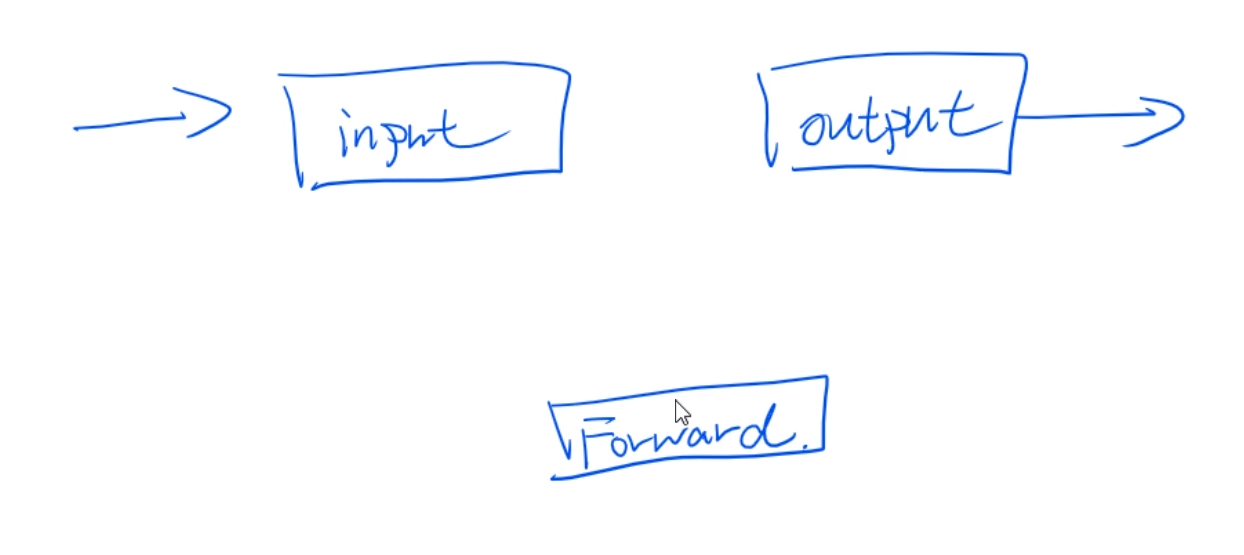 input
output
Forward.